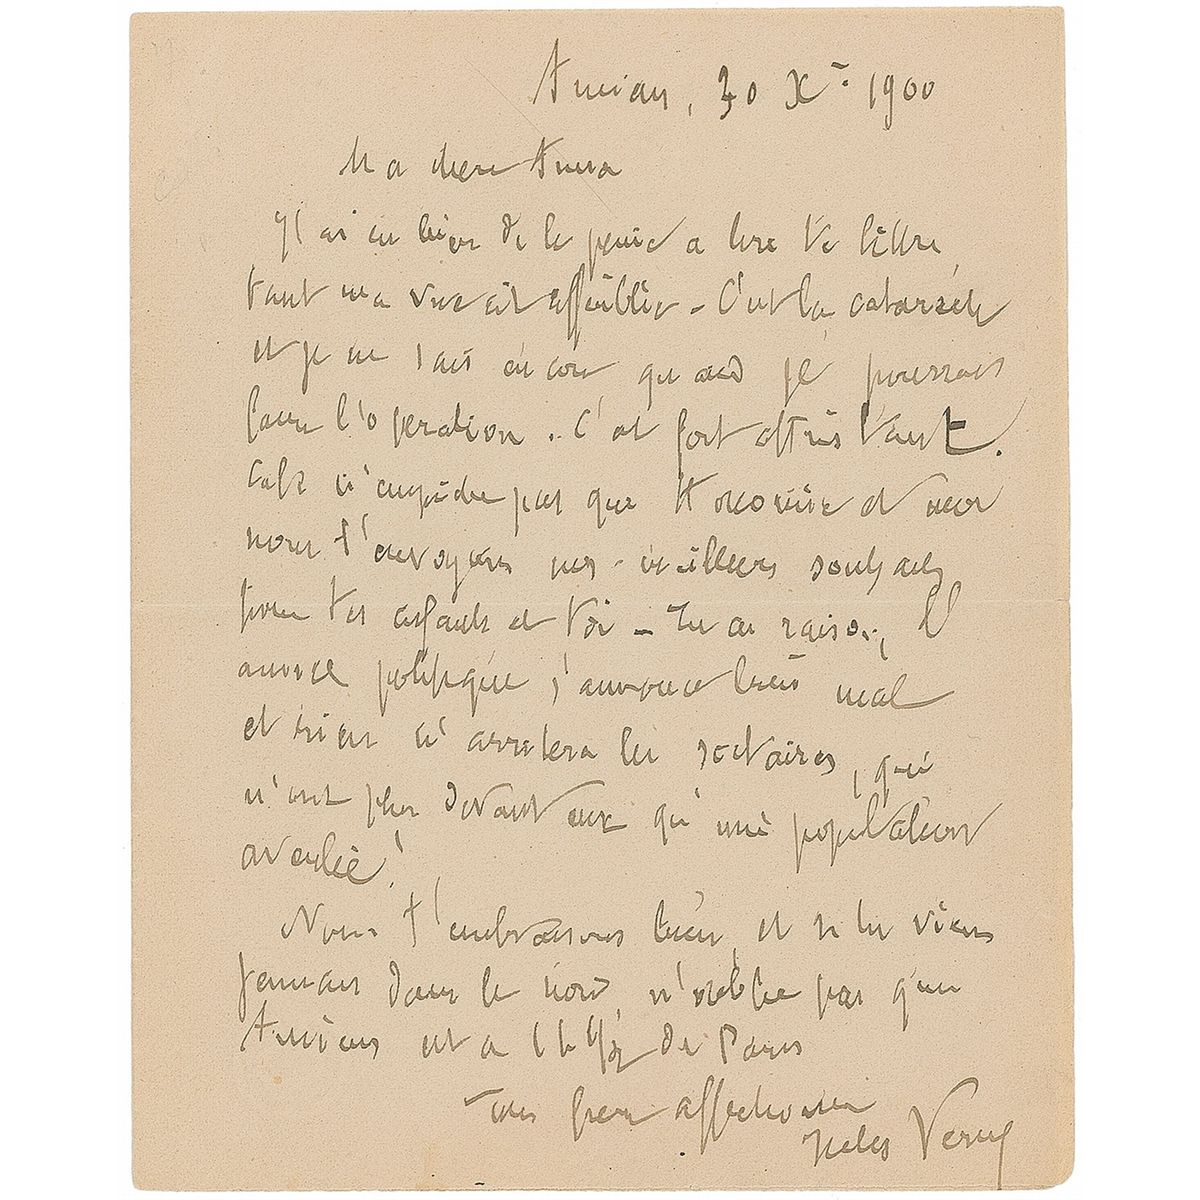 Amiens, 30 Xre 1900
Ma chère Anna
J'ai eu bien de la peine a lire ta lettre,
tant ma vue est affaiblie – C'est la cataracte
et je ne sais encore quand je pourrais
faire l'opération. C'est fort attristant.
Cela n'empêche pas que Honorine et moi
nous t'envoyons nos meilleurs souhaits
pour tes enfants et toi – Tu as raison, l'
année politique s'annonce très mal
et rien n'arretera les sectaires, qui
n'ont plus devant eux qu'une population
aveulie!
Nous t'embrassons bien, et si tu viens
jamais dans le nord, n'oublie pas que
Amiens est a 1 h 1/2 de Paris
Ton frère affectionné
Jules Verne